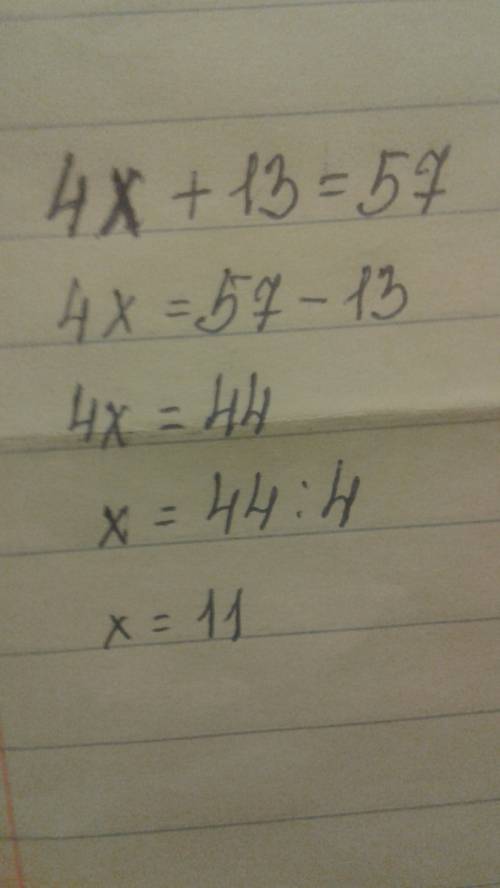 4x + 13 = 57
4x = 57 - 13
4x = 44
x = 44 : 4
x = 11